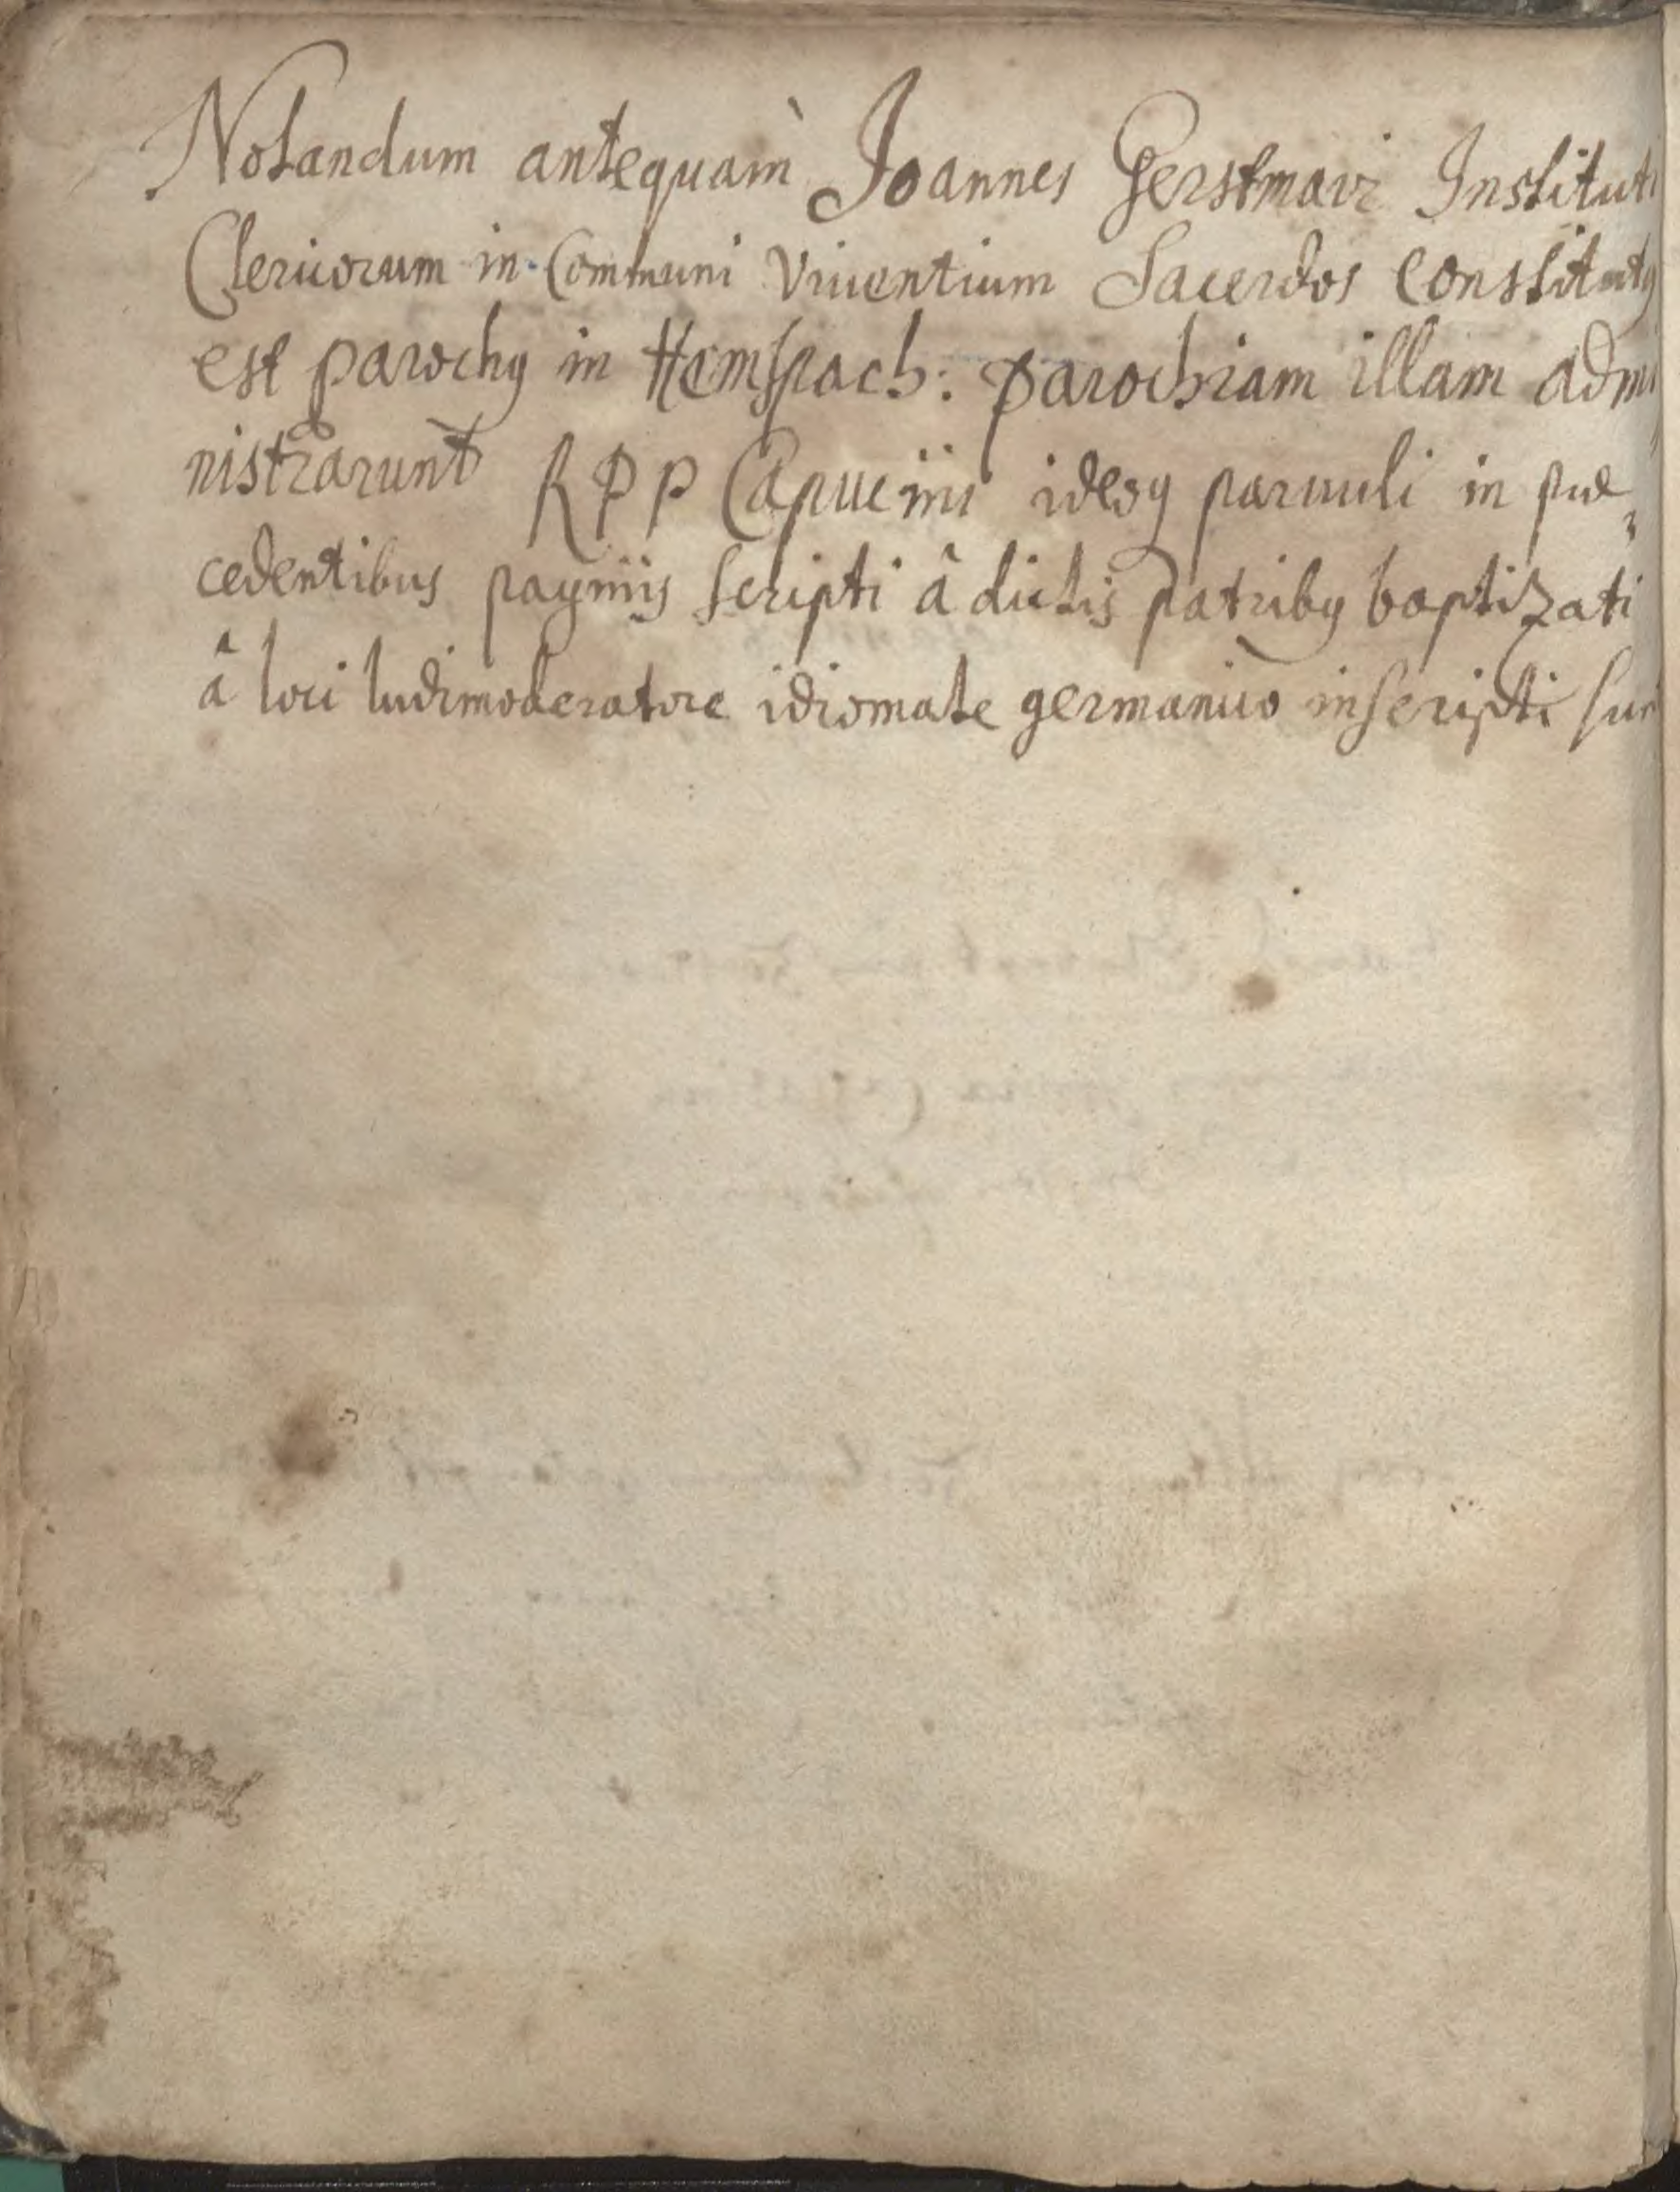 Notandum antequam̀ Joannes Gerstmair Instituti
Clericorum in Communi Viventium Sacerdos Constitutꝰ
est parochꝰ in Hemspach: parochiam illam admi
nistrarunt R P P Capucini ideoqꝫ parvuli in præ
cedentibus paginis scripti â dictis patribꝰ baptizati
â loci ludimoderatore idiomate germanico inscripti sun